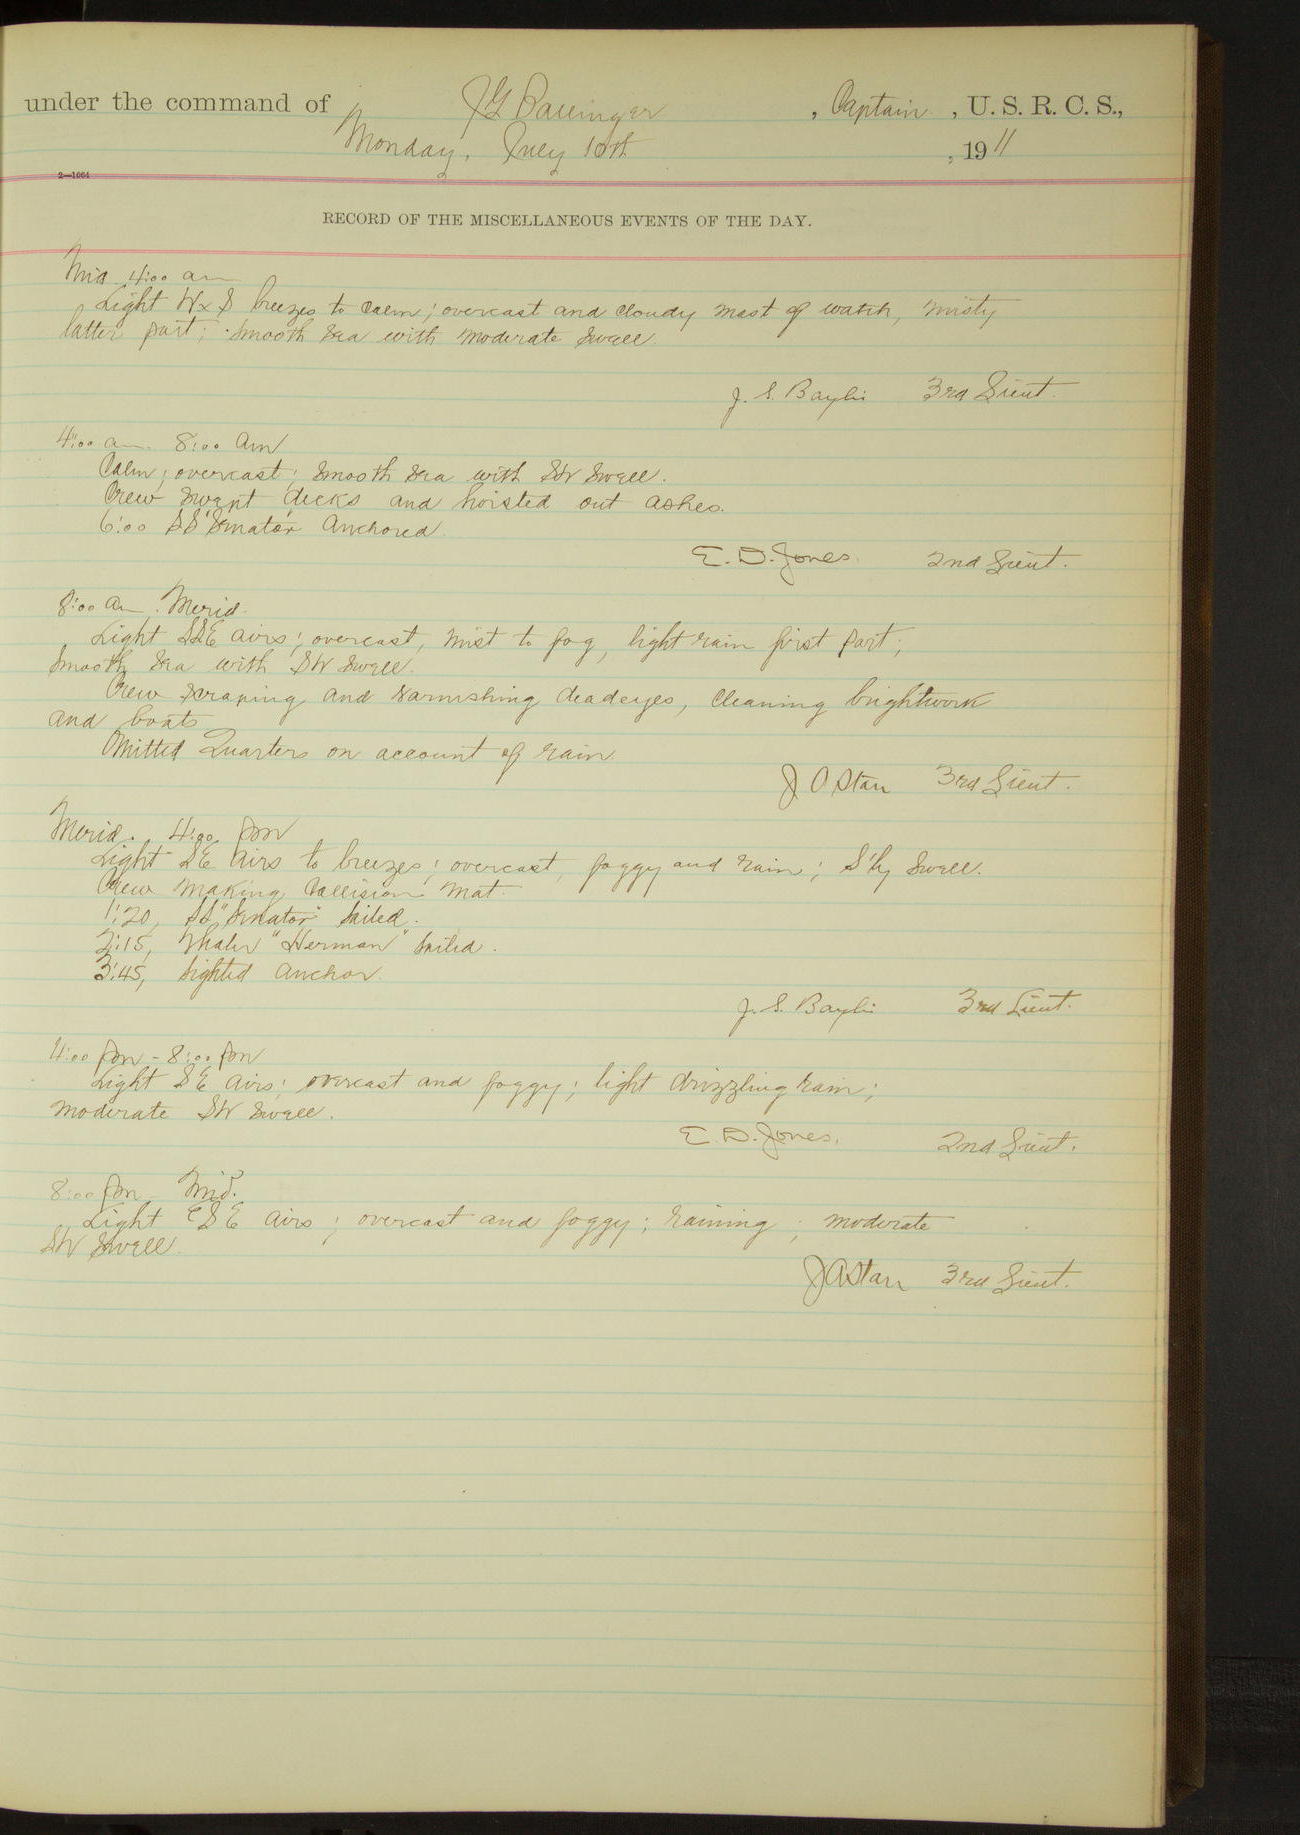 under the command of J G Ballinger, Captain, U. S. R. C. S.,
Monday, July 10th, 1911
2—1064
RECORD OF THE MISCELLANEOUS EVENTS OF THE DAY.
Mid 4:00 am
Light W x S breezes to calm; overcast and cloudy most of watch, misty
latter part; smooth sea with moderate swell.
J. S. Baylis 3rd Lieut.
4:00 am 8:00 Am
Calm; overcast; smooth sea with SW swell.
Crew swept decks and hoisted out ashes.
6:00 SS "Senator" Anchored.
E. D. Jones. 2nd Lieut.
8:00 am. Merid.
Light SSE airs; overcast, mist to fog, light rain first part;
smooth sea with SW swell.
Crew scraping and varnishing deadeyes, cleaning brightwork
and boats
Omitted Quarters on account of rain.
J A Starr 3rd Lieut.
Merid. 4:00 pm
Light SE airs to breezes; overcast, foggy and rain; S'ly swell.
Crew making collision mat.
1:20, SS "Senator" sailed.
2:15, Whaler "Herman" sailed.
3:45, sighted anchor.
J. S. Baylis 3rd Lieut.
4:00 pm - 8:00 pm
Light SE airs; overcast and foggy; light drizzling rain;
moderate SW swell.
E. D. Jones. 2nd Lieut.
8:00 pm Mid.
Light ESE airs; overcast and foggy; raining; moderate
SW swell.
J A Starr 3rd Lieut.